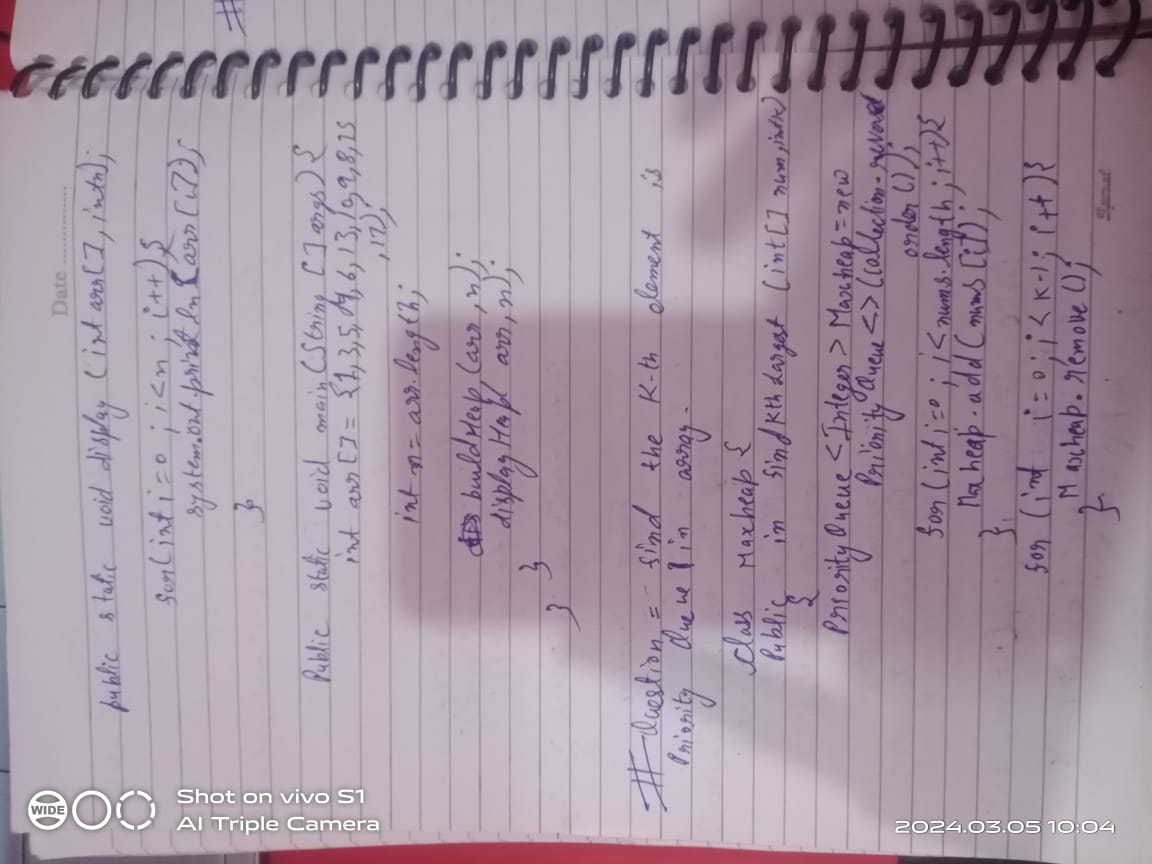 Date ..........
public static void display (int arr[], int n);
for(int i=0 ; i<n ; i++){
system.out.println(arr[i]);
}
Public static void main(String [] args) {
int arr[] = {1,3,5,4,6,13,10,9,8,15
,17};
int n = arr.length;
buildHeap (arr, n);
displayHeap( arr, n);
}
}
# Question = - find the K-th element is
Priority Queue in array.
Class Maxheap {
Public in find Kth Largest (int[] num, int k)
{
Priority Queue <Integer> Maxheap = new
Priority Queue <> (collection.
order ());
for(int i=0 ; i<nums.length; i++){
Maxheap.add(nums[i]);
}
for (int i=0 ; i< K-1; i++){
Maxheap.remove ();
}
WIDE
Shot on vivo S1
AI Triple Camera
2024.03.05 10:04